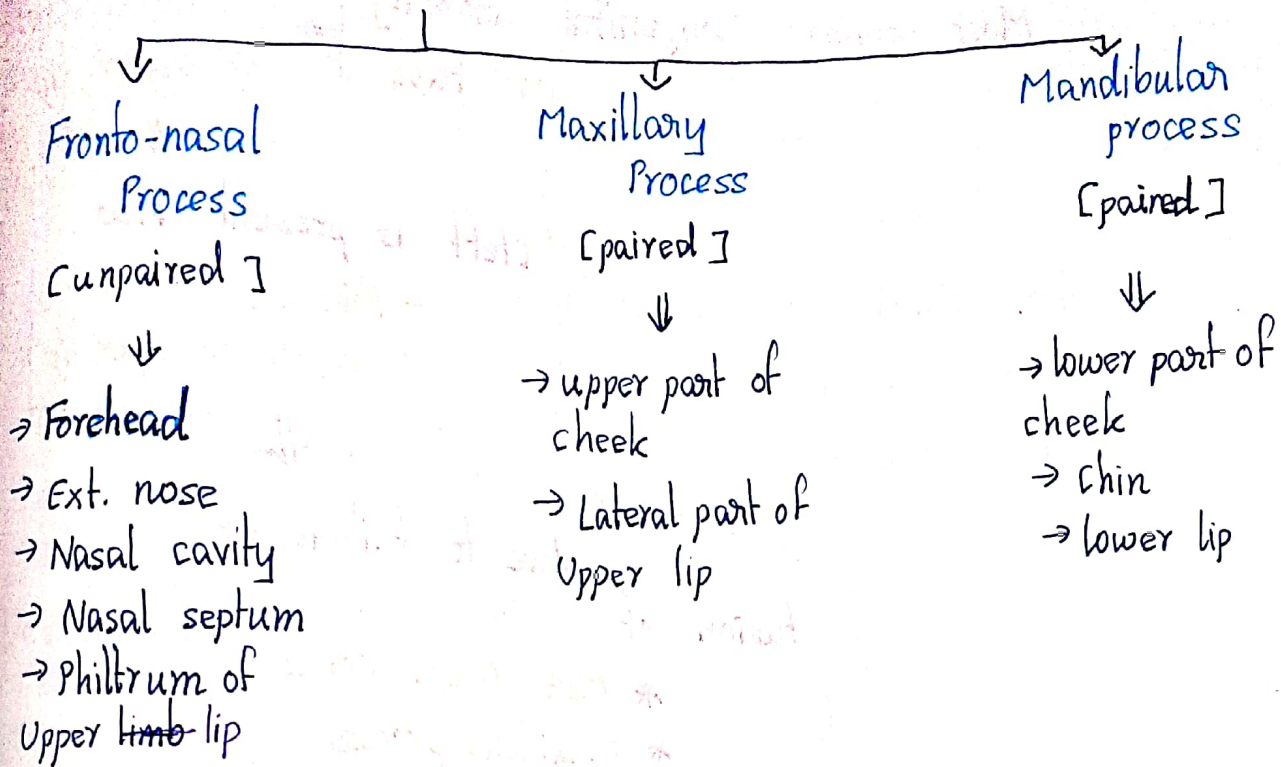 Fronto-nasal
Process
[unpaired]
⇓
→ Forehead
→ Ext. nose
→ Nasal cavity
→ Nasal septum
→ Philtrum of
Upper ~~limb~~ lip
Maxillary
Process
[paired]
⇓
→ upper part of
cheek
→ Lateral part of
Upper lip
Mandibular
process
[paired]
⇓
→ lower part of
cheek
→ Chin
→ lower lip